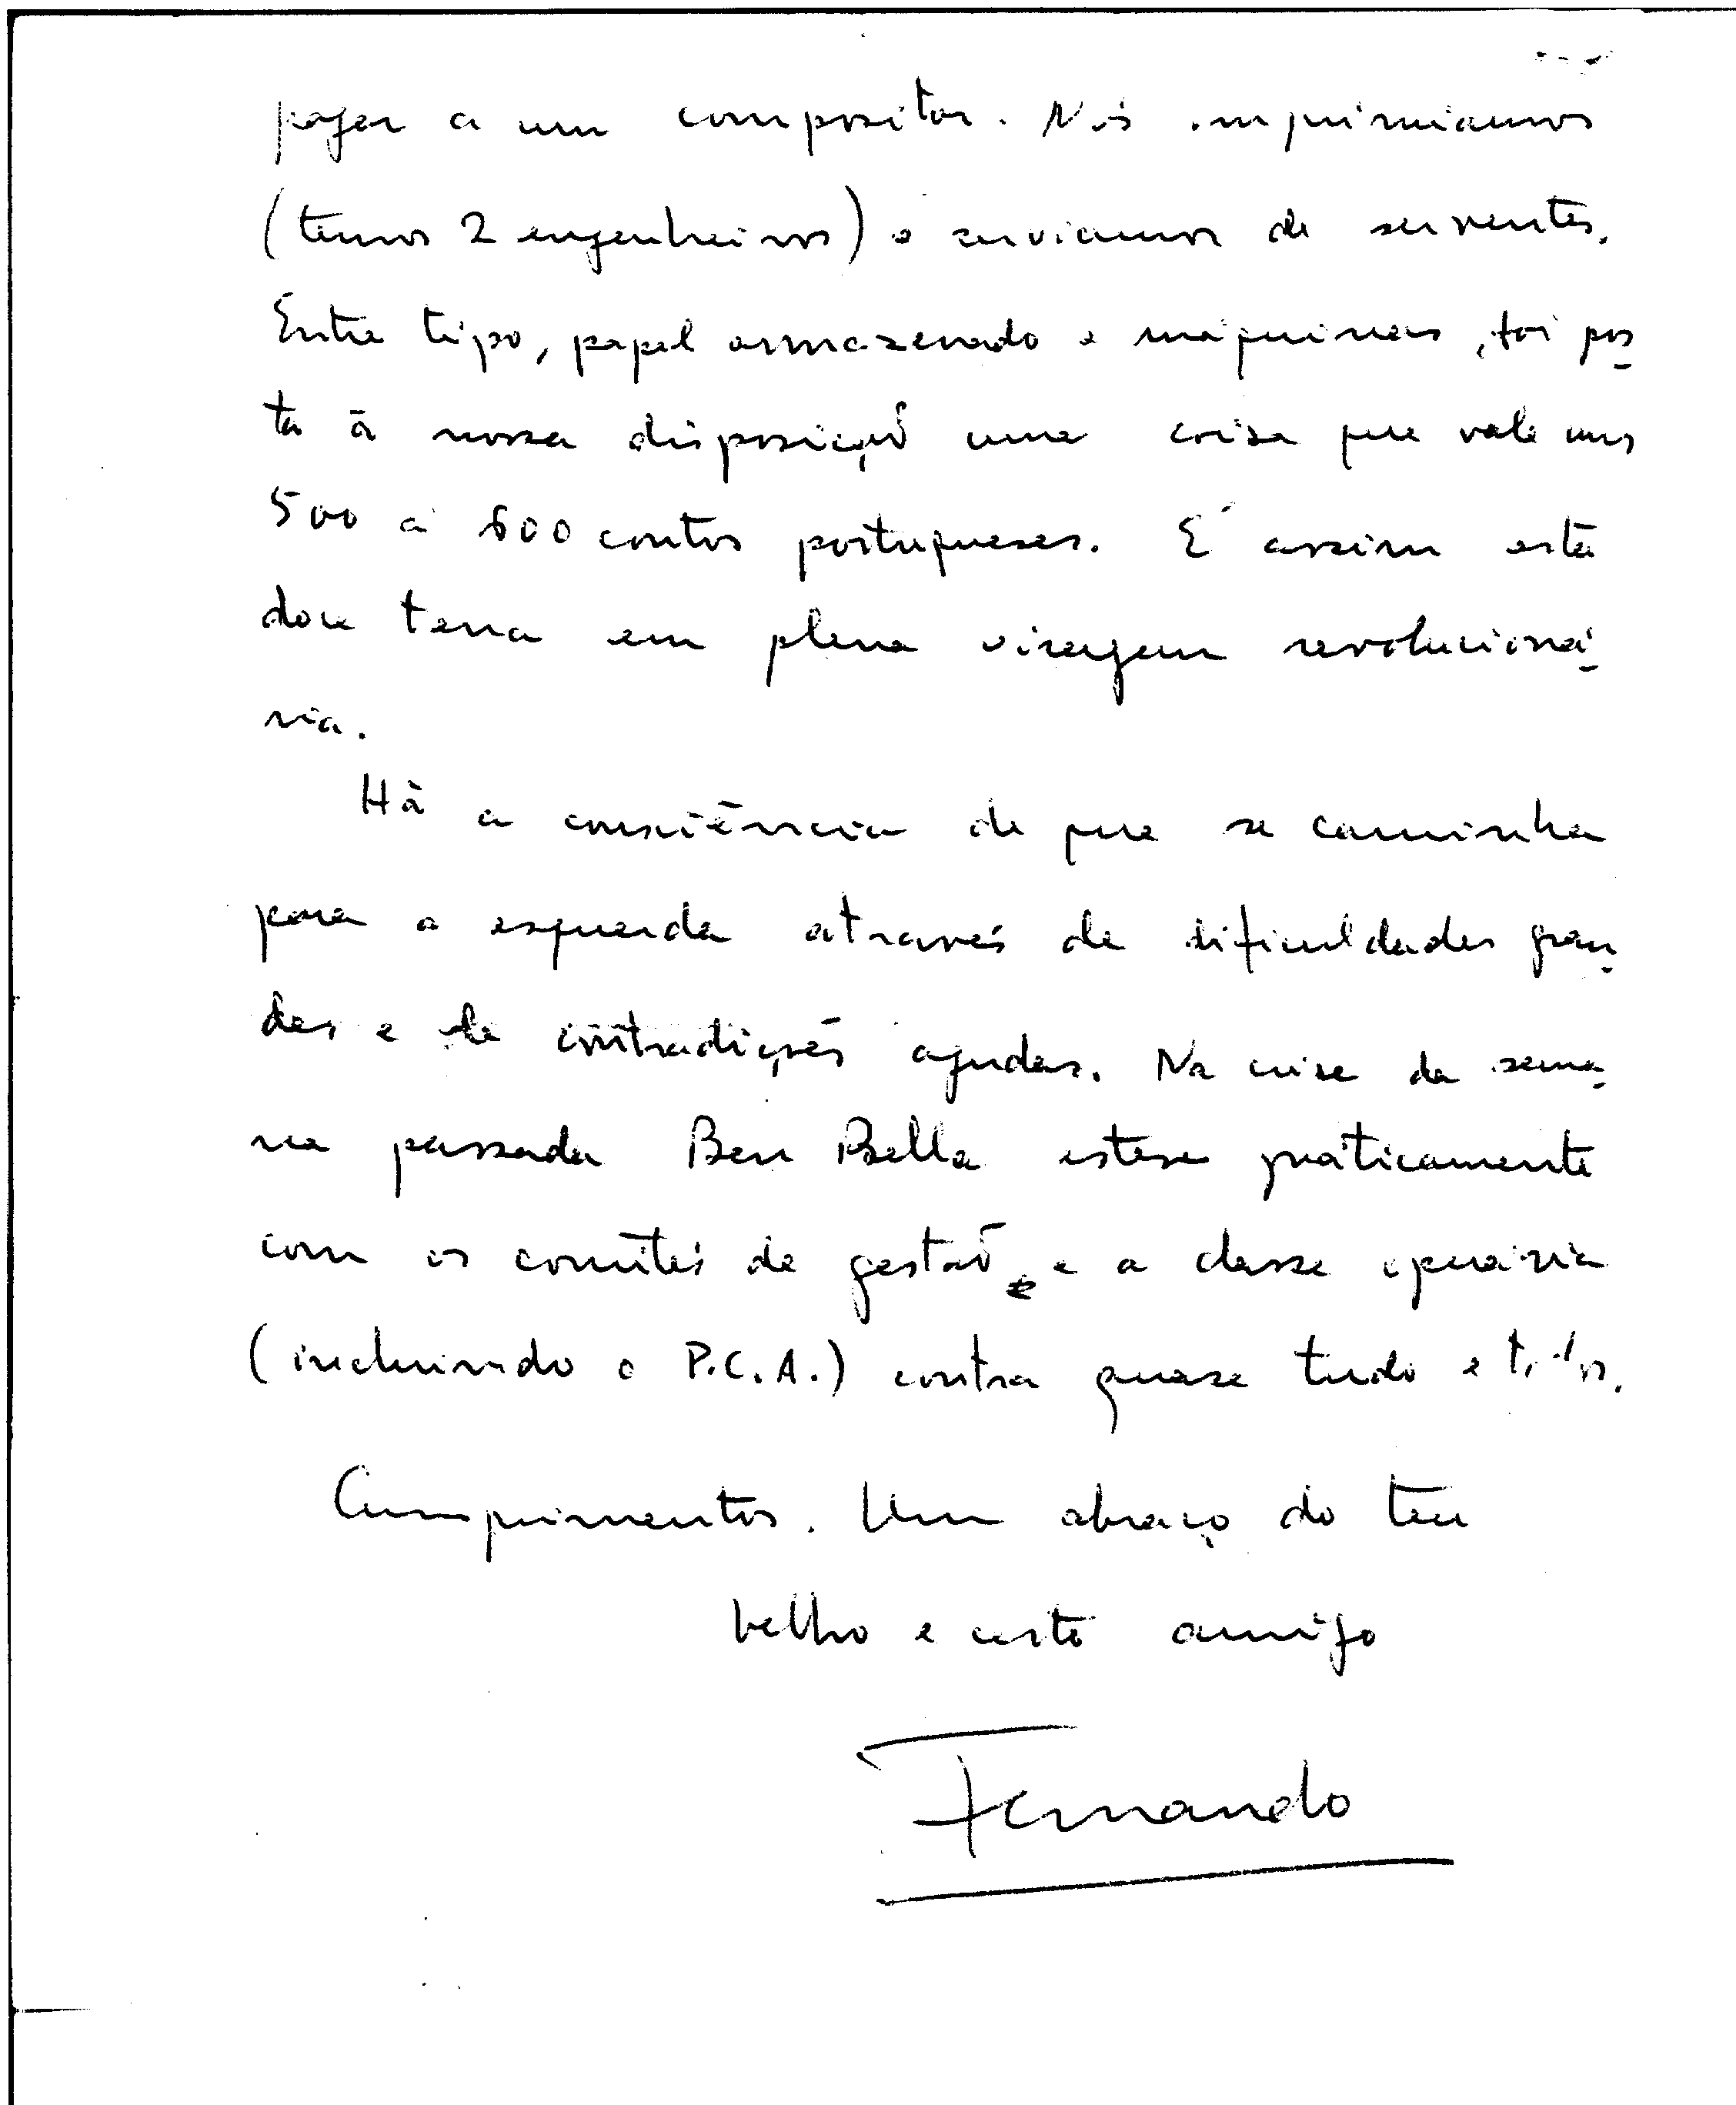 pagar a um compositor. Nós imprimíamos
(temos 2 engenheiros) e serviamos de serventes.
Entre tipo, papel armazenado e máquinas, foi pos-
ta à nossa disposição uma coisa que vale uns
500 a 600 contos portugueses. É assim esta
doce terra em plena viragem revolucioná-
ria.
Há a consciência de que se caminha
para a esquerda através de dificuldades gran-
des e de contradições agudas. Na crise da sema-
na passada Ben Bella esteve práticamente
com os comités de gestão e a classe operária
(incluindo o P.C.A.) contra quase tudo e todos.
Cumprimentos. Um abraço do teu
velho e certo amigo
Fernando